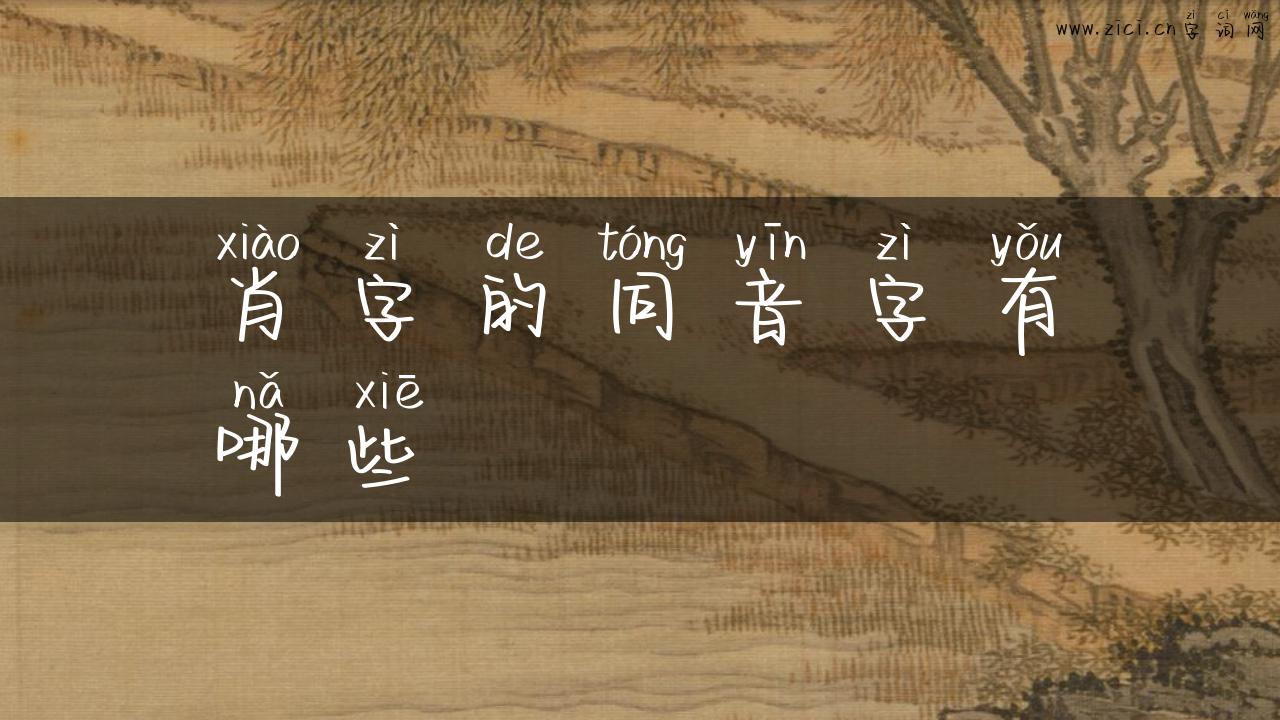 zì cí wǎng
www.zici.cn字词网
xiào zì de tóng yīn zì yǒu
肖字的同音字有
nǎ xiē
哪些